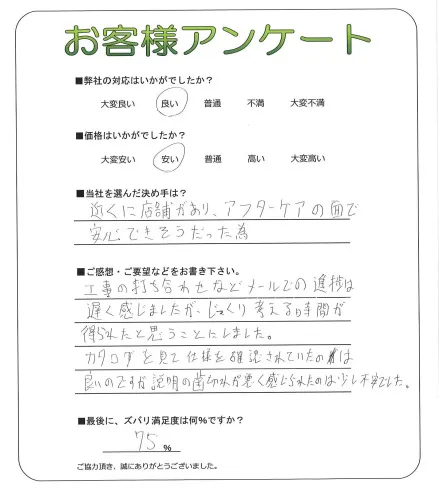 お客様アンケート
■弊社の対応はいかがでしたか？
大変良い　良い　普通　不満　大変不満
■価格はいかがでしたか？
大変安い　安い　普通　高い　大変高い
■当社を選んだ決め手は？
近くに店舗があり、アフターケアの面で
安心できそうだった為
■ご感想・ご要望などをお書き下さい。
工事の打ち合わせなどメールでの進捗は
遅く感じましたが、じっくり考える時間が
得られたと思うことにしました。
カタログを見て仕様を確認されていたのは
良いのですが説明の歯切れが悪く感じられたのは少し不安でした。
■最後に、ズバリ満足度は何%ですか？
75 %
ご協力頂き、誠にありがとうございました。